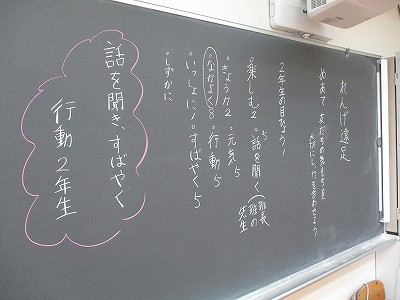 れんげ遠足
めあて 友だちの気もちを
大切にし、力を合わせよう
2年生の目ひょう！
・楽しむ2 ・話を聞く 5
班長
班の
先生
・きょう力2 ・元気5
・なかよく8 ・行動5
・いっしょに1 ・すばやく5
・しずかに
話を聞き、すばやく
行動2年生